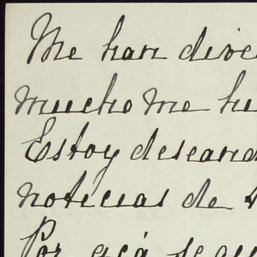 Me han dive
mucho me hu
Estoy desean
noticias de
Por acá se